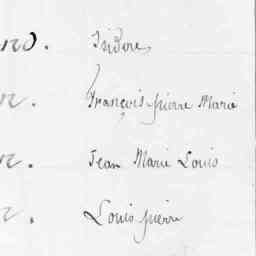 Isidore
François pierre Marie
Jean Marie Louis
Louis pierre